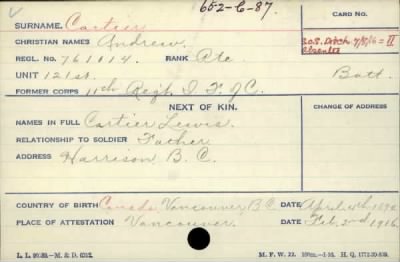 652-C-87.
SURNAME. Cartier
CARD NO.
CHRISTIAN NAMES Andrew.
REGL. NO. 761114. RANK Pte
S.O.S. 7/5/16 = II
Absentee
UNIT 121st. Batt.
FORMER CORPS 11th Regt
NEXT OF KIN.
CHANGE OF ADDRESS
NAMES IN FULL Cartier Lewis.
RELATIONSHIP TO SOLDIER Father
ADDRESS Harrison B.C.
COUNTRY OF BIRTH Canada Vancouver B.C. DATE April 4th
PLACE OF ATTESTATION Vancouver. DATE Feb. 2nd 1916
M. F. W. 22.